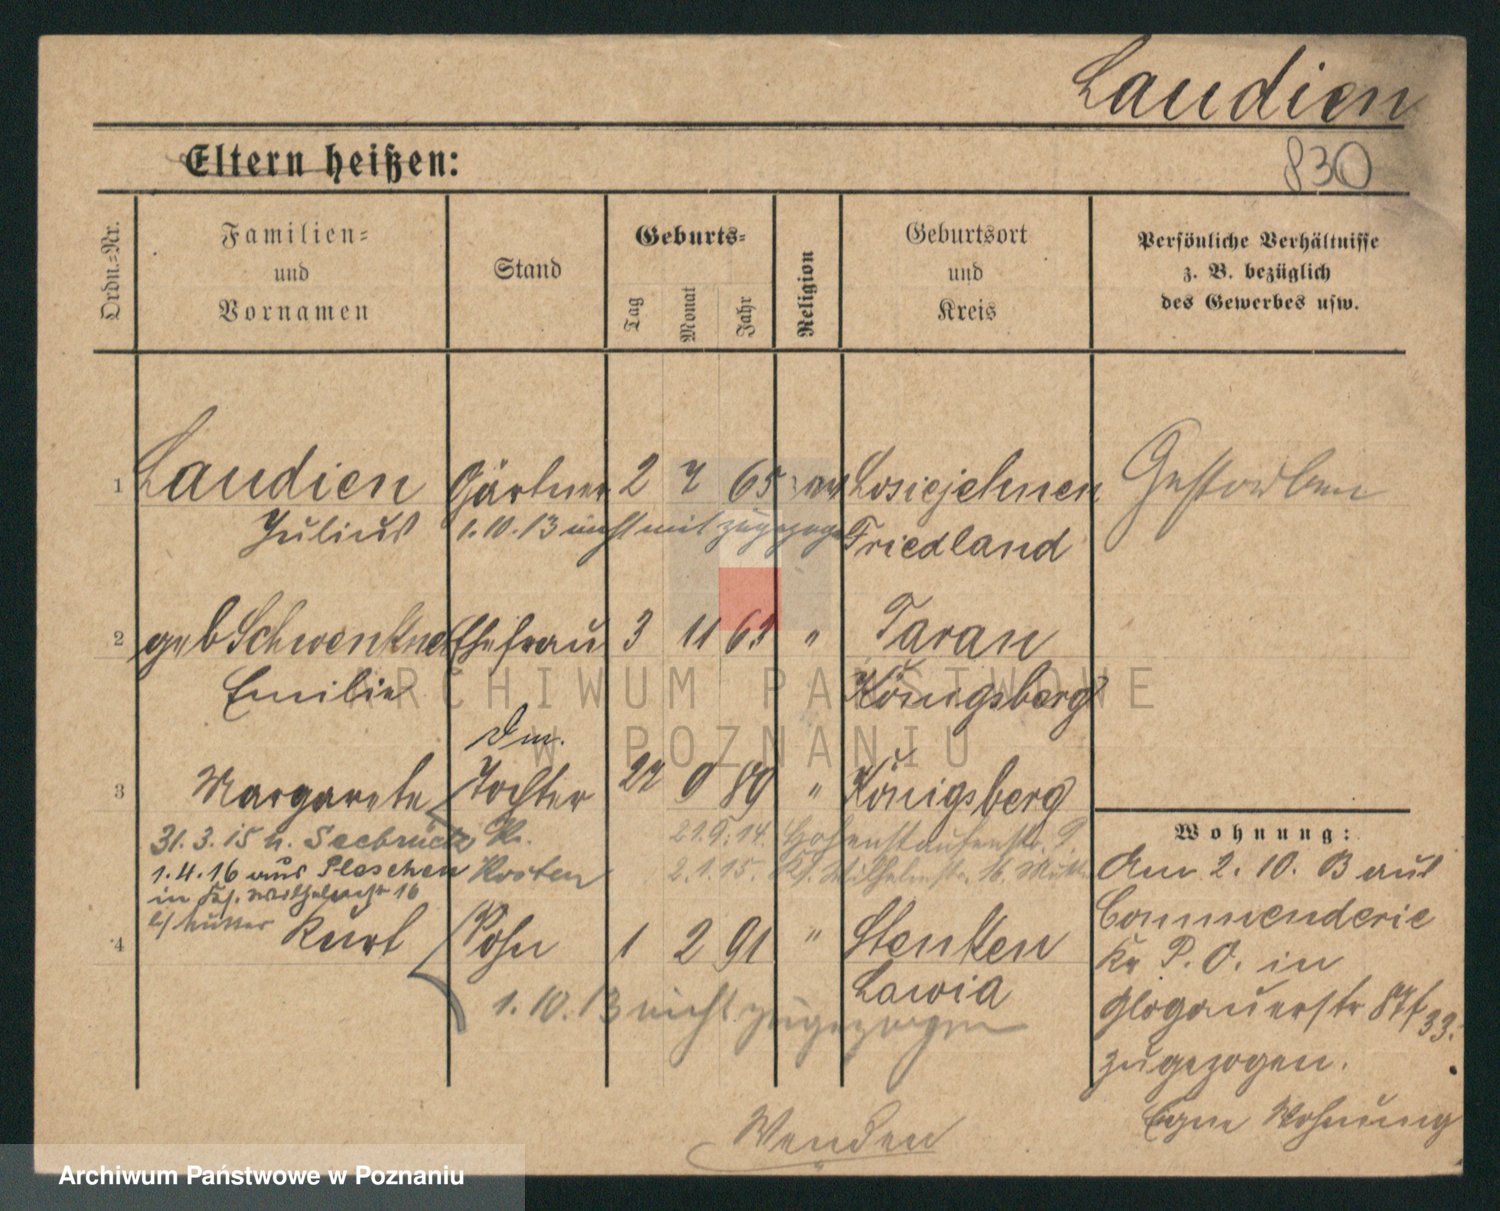 Laudien
830
Eltern heißen:
Ordn.-Nr.
Familien-
und
Vornamen
Stand
Geburts-
Tag
Monat
Jahr
Religion
Geburtsort
und
Kreis
Persönliche Verhältnisse
z. B. bezüglich
des Gewerbes usw.
1 Laudien Gärtner 2 7 65 ev Losiejehnen Gestorben
Julius 1.10.13 nicht mit zugezogen Friedland
2 geb Schwenkner Ehefrau 3 11 63 " Taran
Emilie Königsberg
3 Margarete Tochter 22 9 89 " Königsberg
Wohnung:
31.3.15 n. Seebrück Kr. 21.9.14. Hohenstaufenstr. 9.
1.4.16 aus Pleschen Kosten 2.1.15. Ks. Wilhelmstr. 16. Mutter
in Ks. Wilhelmstr 16
b/ Mutter
4 Kurt Sohn 1 2 91 " Stenken
Lawia
1.10.13 nicht zugezogen
Am 2.10.13 aus
Commenderie
Kr P. O. in
Glogauerstr 87 33.
zugezogen.
Eigne Wohnung
Wenden
ARCHIWUM PAŃSTWOWE
W POZNANIU
Archiwum Państwowe w Poznaniu